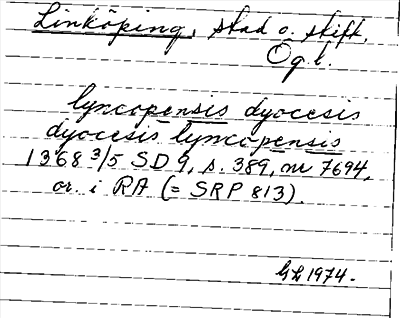 Linköping, stad o. skift,
Ög l.
lyncopensis dyocesis
dyocesis lyncopensis
1368 3/5 SD 9, s. 389, nr 7694,
or. i RA (= SRP 813).
GL 1974.